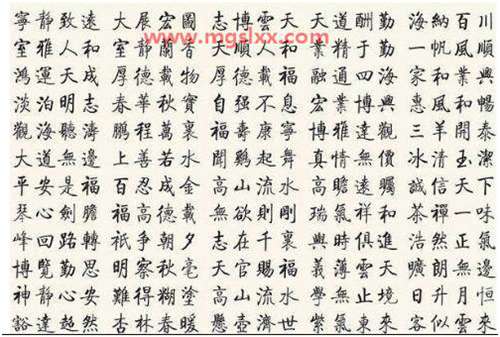 www.mgslxx.com
寧靜致遠 大展宏國 志博雲天 天道酬勤 海納百川
室雅人和 室靜蘭香 大順人和 業精于勤 一帆風順
鴻運天成 厚德載物 厚德載福 融通四海 家和業興
淡泊明志 春華秋寶 自强不息 宏業 惠風和暢
觀海聽濤 鵬程萬裏 福壽康寧 博雅達觀 三羊開泰
大道無邊 上善若水 聞鷄起舞 真情無價 冰清玉潔
平安是福 百忍成金 高山流水 高瞻遠矚 誠信天下
琴心劍膽 福高德載 無欲則剛 瑞氣祥和 茶禪一味
峰回路轉 祇争朝夕 志在千裏 興時俱進 浩然正氣
博覽勤思 明察秋毫 天官賜福 義薄雲天 曠朗無邊
神静心安 難得糊塗 高山流水 學無止境 日升月恒
豁達超然 杏林春暖 懸壺濟世 紫氣東來 客似雲來